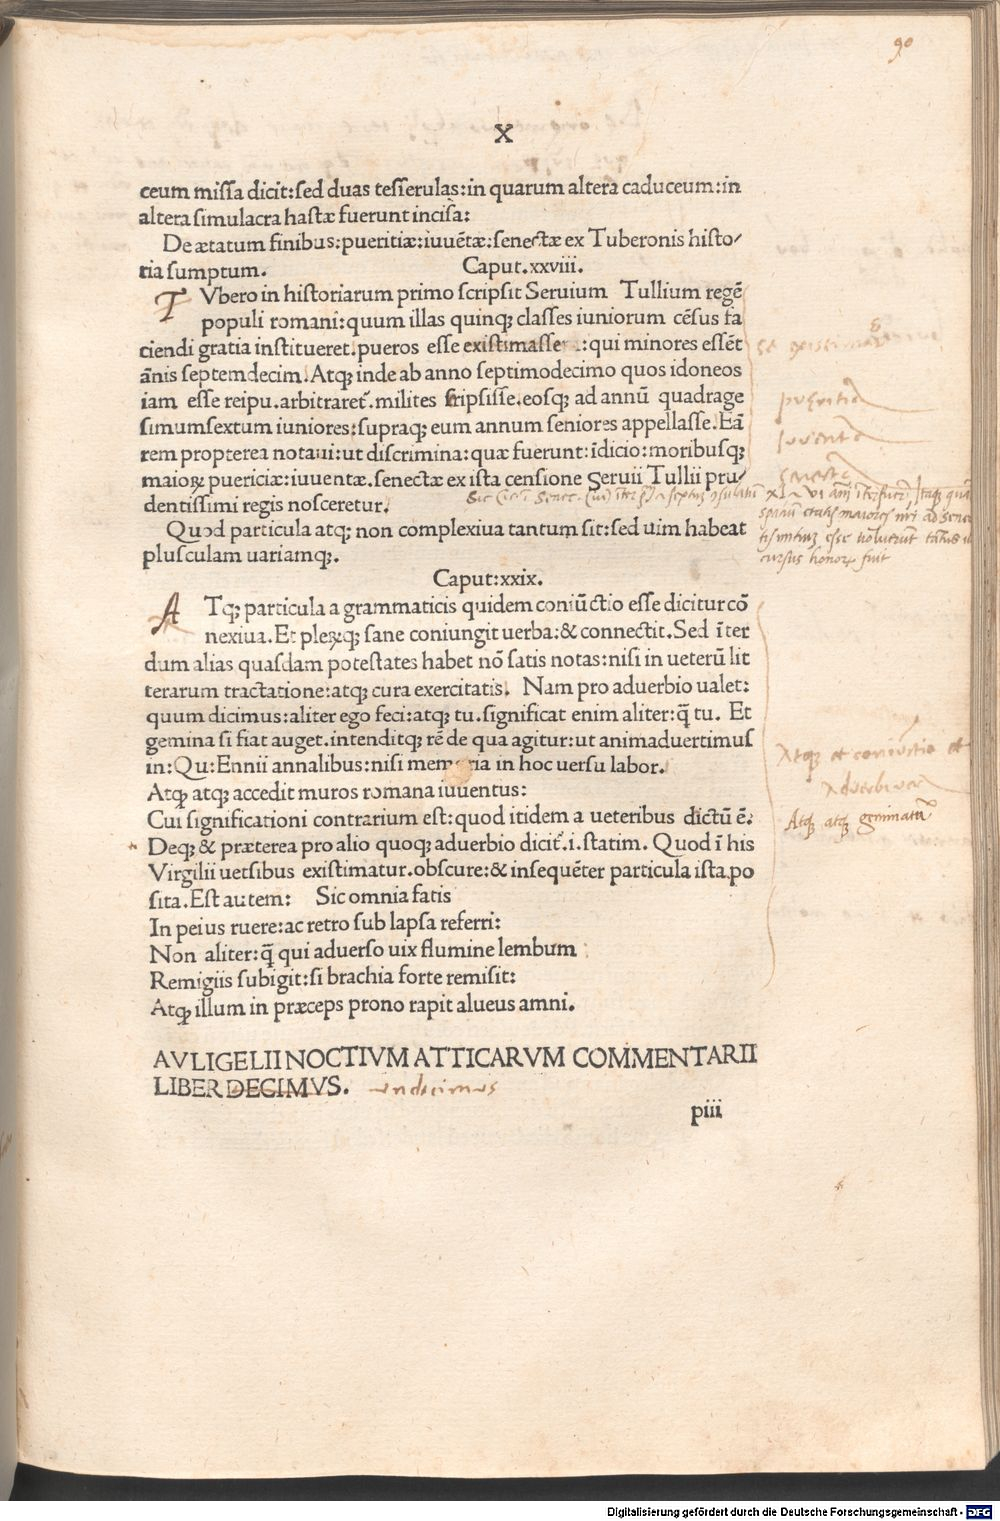 90
X
ceum missa dicit:sed duas tesserulas:in quarum altera caduceum:in
altera simulacra hastæ fuerunt incisa:
De ætatum finibus:pueritiæ:iuuētæ:senectæ ex Tuberonis histo/
ria sumptum. Caput.xxviii.
T Vbero in historiarum primo scripsit Seruium Tullium regē
populi romani:quum illas quinqȝ classes iuniorum cēsus fa
ciendi gratia institueret.pueros esse existimasse :qui minores essēt
ānis septemdecim.Atqȝ inde ab anno septimodecimo quos idoneos
iam esse reipu.arbitraret̃.milites scripsisse.eosqȝ ad annū quadrage
simumsextum iuniores:supraqȝ eum annum seniores appellasse.Eā
rem propterea notaui:ut discrimina:quæ fuerunt:īdicio:moribusqȝ
maioꝝ puericiæ:iuuentæ.senectæ ex ista censione Seruii Tullii pru/
dentissimi regis nosceretur.
Quod particula atqȝ non complexiua tantum sit:sed uim habeat
plusculam uariamqȝ.
Caput:xxix.
A Tqȝ particula a grammaticis quidem coniūctio esse dicitur cō
nexiua.Et pleꝝqȝ sane coniungit uerba:& connectit.Sed īter
dum alias quasdam potestates habet nō satis notas:nisi in ueterū lit
terarum tractatione:atqȝ cura exercitatis. Nam pro aduerbio ualet:
quum dicimus:aliter ego feci:atqȝ tu.significat enim aliter:q̄ tu. Et
gemina si fiat auget.intenditqȝ rē de qua agitur:ut animaduertimus
in:Qu:Ennii annalibus:nisi memoria in hoc uersu labor.
Atqȝ atqȝ accedit muros romana iuuentus:
Cui significationi contrarium est:quod itidem a ueteribus dictū ē:
Deqȝ & præterea pro alio quoqȝ aduerbio dicit̃.i.statim. Quod ī his
Virgilii uersibus existimatur.obscure:& insequēter particula ista.po
sita.Est autem: Sic omnia fatis
In peius ruere:ac retro sub lapsa referri:
Non aliter:q̄ qui aduerso uix flumine lembum
Remigiis subigit:si brachia forte remisit:
Atqȝ illum in præceps prono rapit alueus amni.
AVLIGELII NOCTIVM ATTICARVM COMMENTARII
LIBER DECIMVS. undecimus
piii
pueritia
iuuenta
senecta
spatiū etatis maiores nr̄i ad senec
tis initiuȝ esse uoluerunt
cursus honoꝝ fuit
Atqȝ et coniūctio et
Aduerbium
Atqȝ atqȝ geminatū